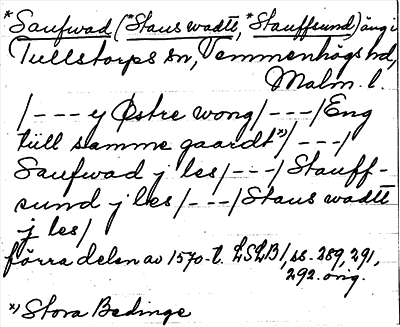 *Saufwad (*Staus wadtt, *Stauffsund) äng i
Tullstorps sn, Vemmenhögs hd,
Malm. l.
/--- y Østre wong/---/Eng
till samme gaardt*)/---/
Saufwad j les/---/Stauff-
sund j les/---/Staus wadtt
j les/
förra delen av 1570-t. LSLB1, ss. 289, 291,
292. orig.
*) Stora Bedinge